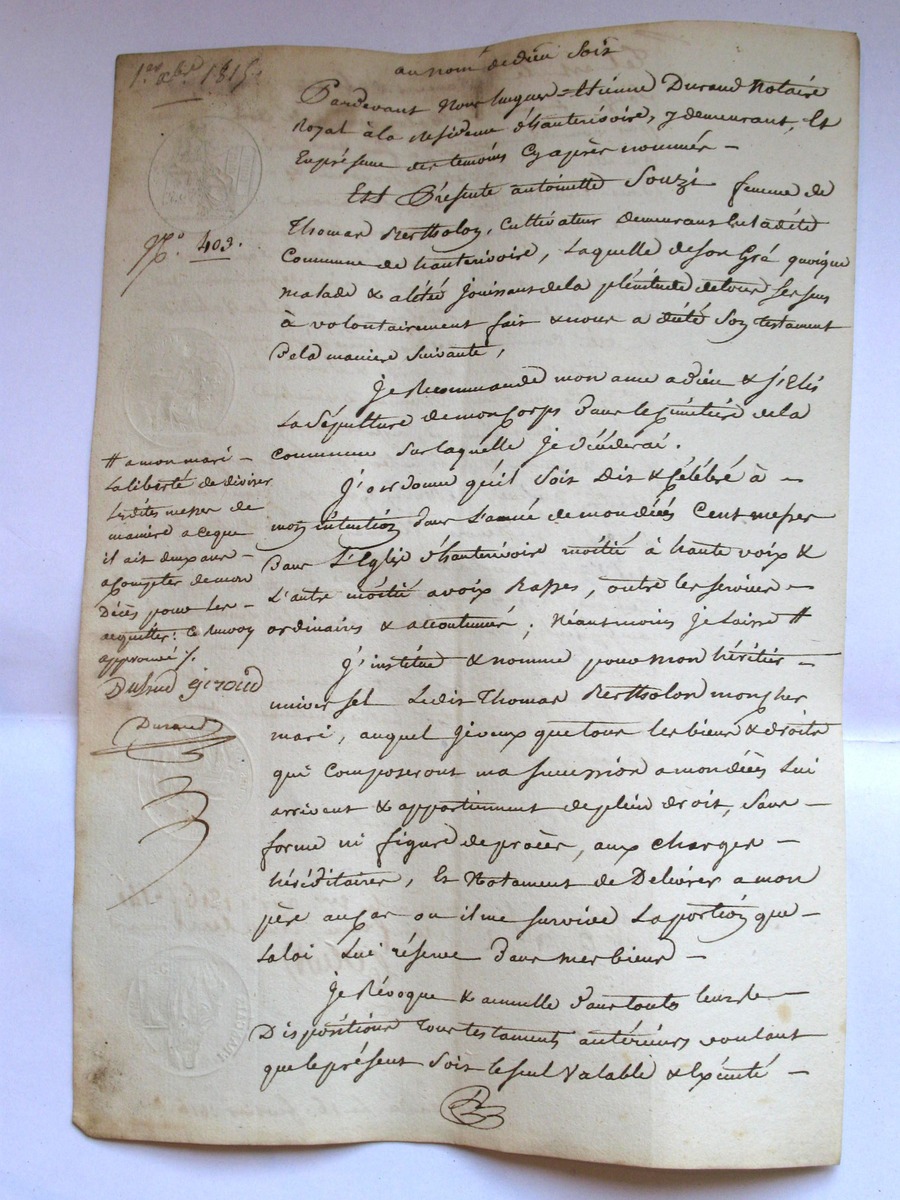 1er xbre 1815.
au nom de dieu soit
Pardevant Nous hugues-Etienne Durand Notaire
Royal à la Residence d'hauterivoire, y demeurant, Et
En présence des temoins Cy après nommés —
Est Présente antoinette Souzi femme de
Thomas Bertholon, Cultivateur demeurans en ladite
Commune de hauterivoire, Laquelle de son Gré quoique
malade & alitée Jouissant de la plénitude de tous ses sens
à volontairement fait & nous a dicté Son testament
de la maniere suivante,
No. 403.
Je Recommande mon ame a dieu & J'Elis
La Sépulture de mon Corps dans le Cimétière de la
Commune Sur laquelle Je décéderai.
J'ordonne qu'il Soit Dit & Célébré à —
mon intention dans L'année de mon décès Cent messes
dans L'Eglise d'hauterivoire moitié à haute voix &
L'autre moitié a voix Basses, outre les services —
ordinaires & accoutumés; Néantmoins Je laisse #
# a mon mari —
La liberté de diviser
Lesdites messes de
maniere a ceque
il ait deux ans —
a Compter de mon
Décès pour les —
acquitter: Ce Renvoy
approuvé /.
Dubrud giroud
Durand
J'institue & nomme pour mon héritier —
universel Ledit Thomas Bertholon mon cher
mari, auquel Je veux que tous les biens & droits
qui Composeront ma succession a mon décès Lui
arrivent & appartiennent de plein droit, Sans —
forme ni figure de procès, aux charges —
héréditaires, Et Notament de Delivrer a mon
père au Cas ou il me survive La portion que —
La loi Lui réserve dans mes biens —
Je Révoque & annulle dans toute leurs —
Dispositions Tous testaments antérieurs voulant
que le présent Soit le seul Valable & Exécuté —